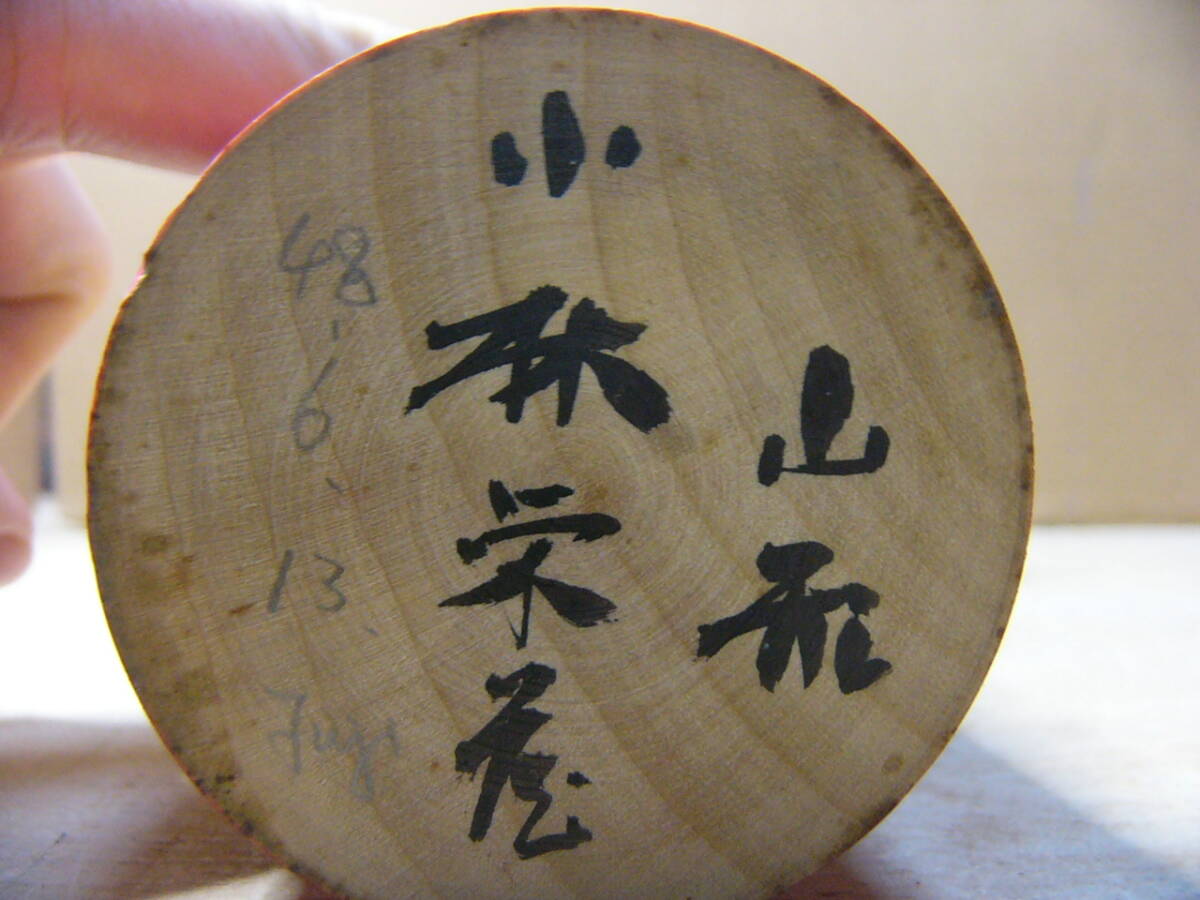 山形
小林栄蔵
48-6、13、
Fuji